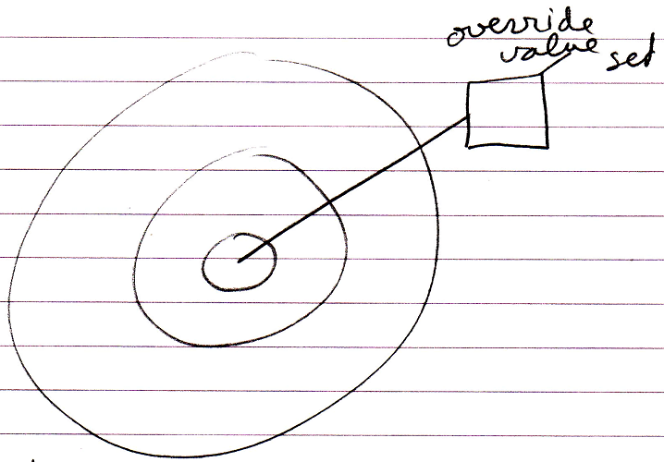 override
value set